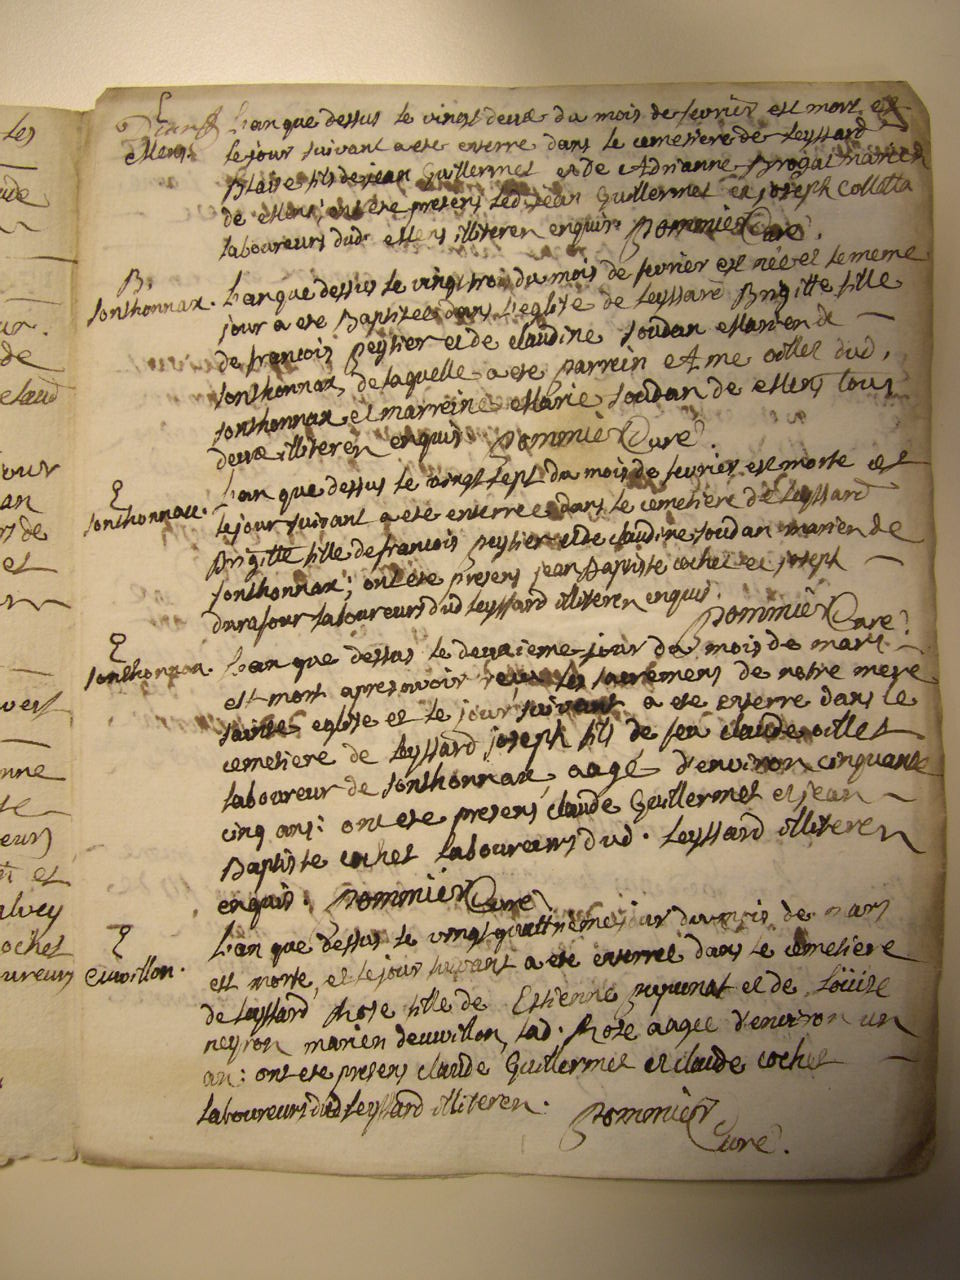 L'an que dessus le vingt deux du mois de fevrier est mort et
Mens. le jour suivant a ete enterre dans le cemetiere de Leyssard
Blaise fils de jean Guillermet et de Adrianne Brogat mariés
de Mens; ont ete presens led. jean Guillermet et joseph Colletta
laboureurs dud. Mens illiteren enquis. Pommier Curé.
B.
sonthonnax. L'an que dessus le vingt trois du mois de fevrier est née et le meme
jour a ete Baptisee dans l'eglise de Leyssard Brigitte fille
de francois Peysier et de claudine Soudan marien de
sonthonnax, de laquelle a ete parrein Aime oillet dud.
sonthonnax et marreine Marie Soudan de Mens tous
deux illiteren enquis Pommier Curé.
sonthonnax. L'an que dessus le vingt sept du mois de fevrier est morte et
le jour suivant a ete enterree dans le cemetiere de Leyssard
Brigitte fille de francois Peysier et de claudine Soudan marien de
sonthonnax; ont ete presens jean Baptiste cochet et joseph
durafour laboureurs dud Leyssard illiteren enquis.
Pommier Curé.
sonthonnax. L'an que dessus le deuxieme jour du mois de mars
est mort apres avoir reçu les sacremens de notre mere
sainte eglise et le jour suivant a ete enterre dans le
cemetiere de Leyssard joseph fils de feu claude oillet
laboureur de sonthonnax, aagé d'environ cinquante
cinq ans: ont ete presens claude Guillermet et jean
Baptiste cochet laboureurs dud. Leyssard illiteren
enquis. Pommier Curé
L'an que dessus le vingt quattrieme jour du mois de mars
Euvillon. est morte, et le jour suivant a ete enterreé dans le cemetiere
de Leyssard Rose fille de Estienne et de Loüise
neyron marien deuvillon, lad. Rose aagee d'environ un
an: ont ete presens claude Guillermet et claude cochet
laboureurs dud Leyssard illiteren.
Pommier
Curé.